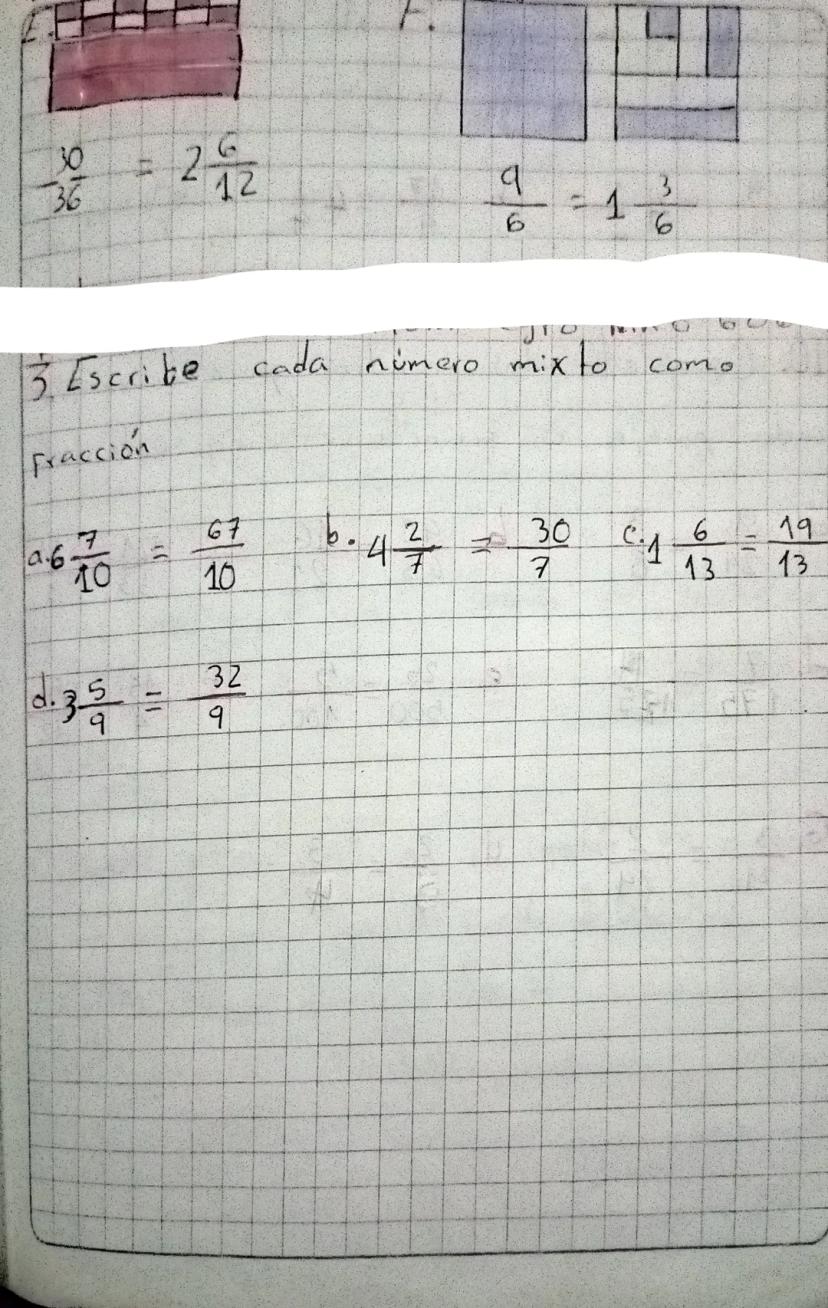 E. F.
30/36 = 2 6/12 9/6 = 1 3/6
3. Escribe cada número mixto como
Fracción
a. 6 7/10 = 67/10 b. 4 2/7 = 30/7 c. 1 6/13 = 19/13
d. 3 5/9 = 32/9